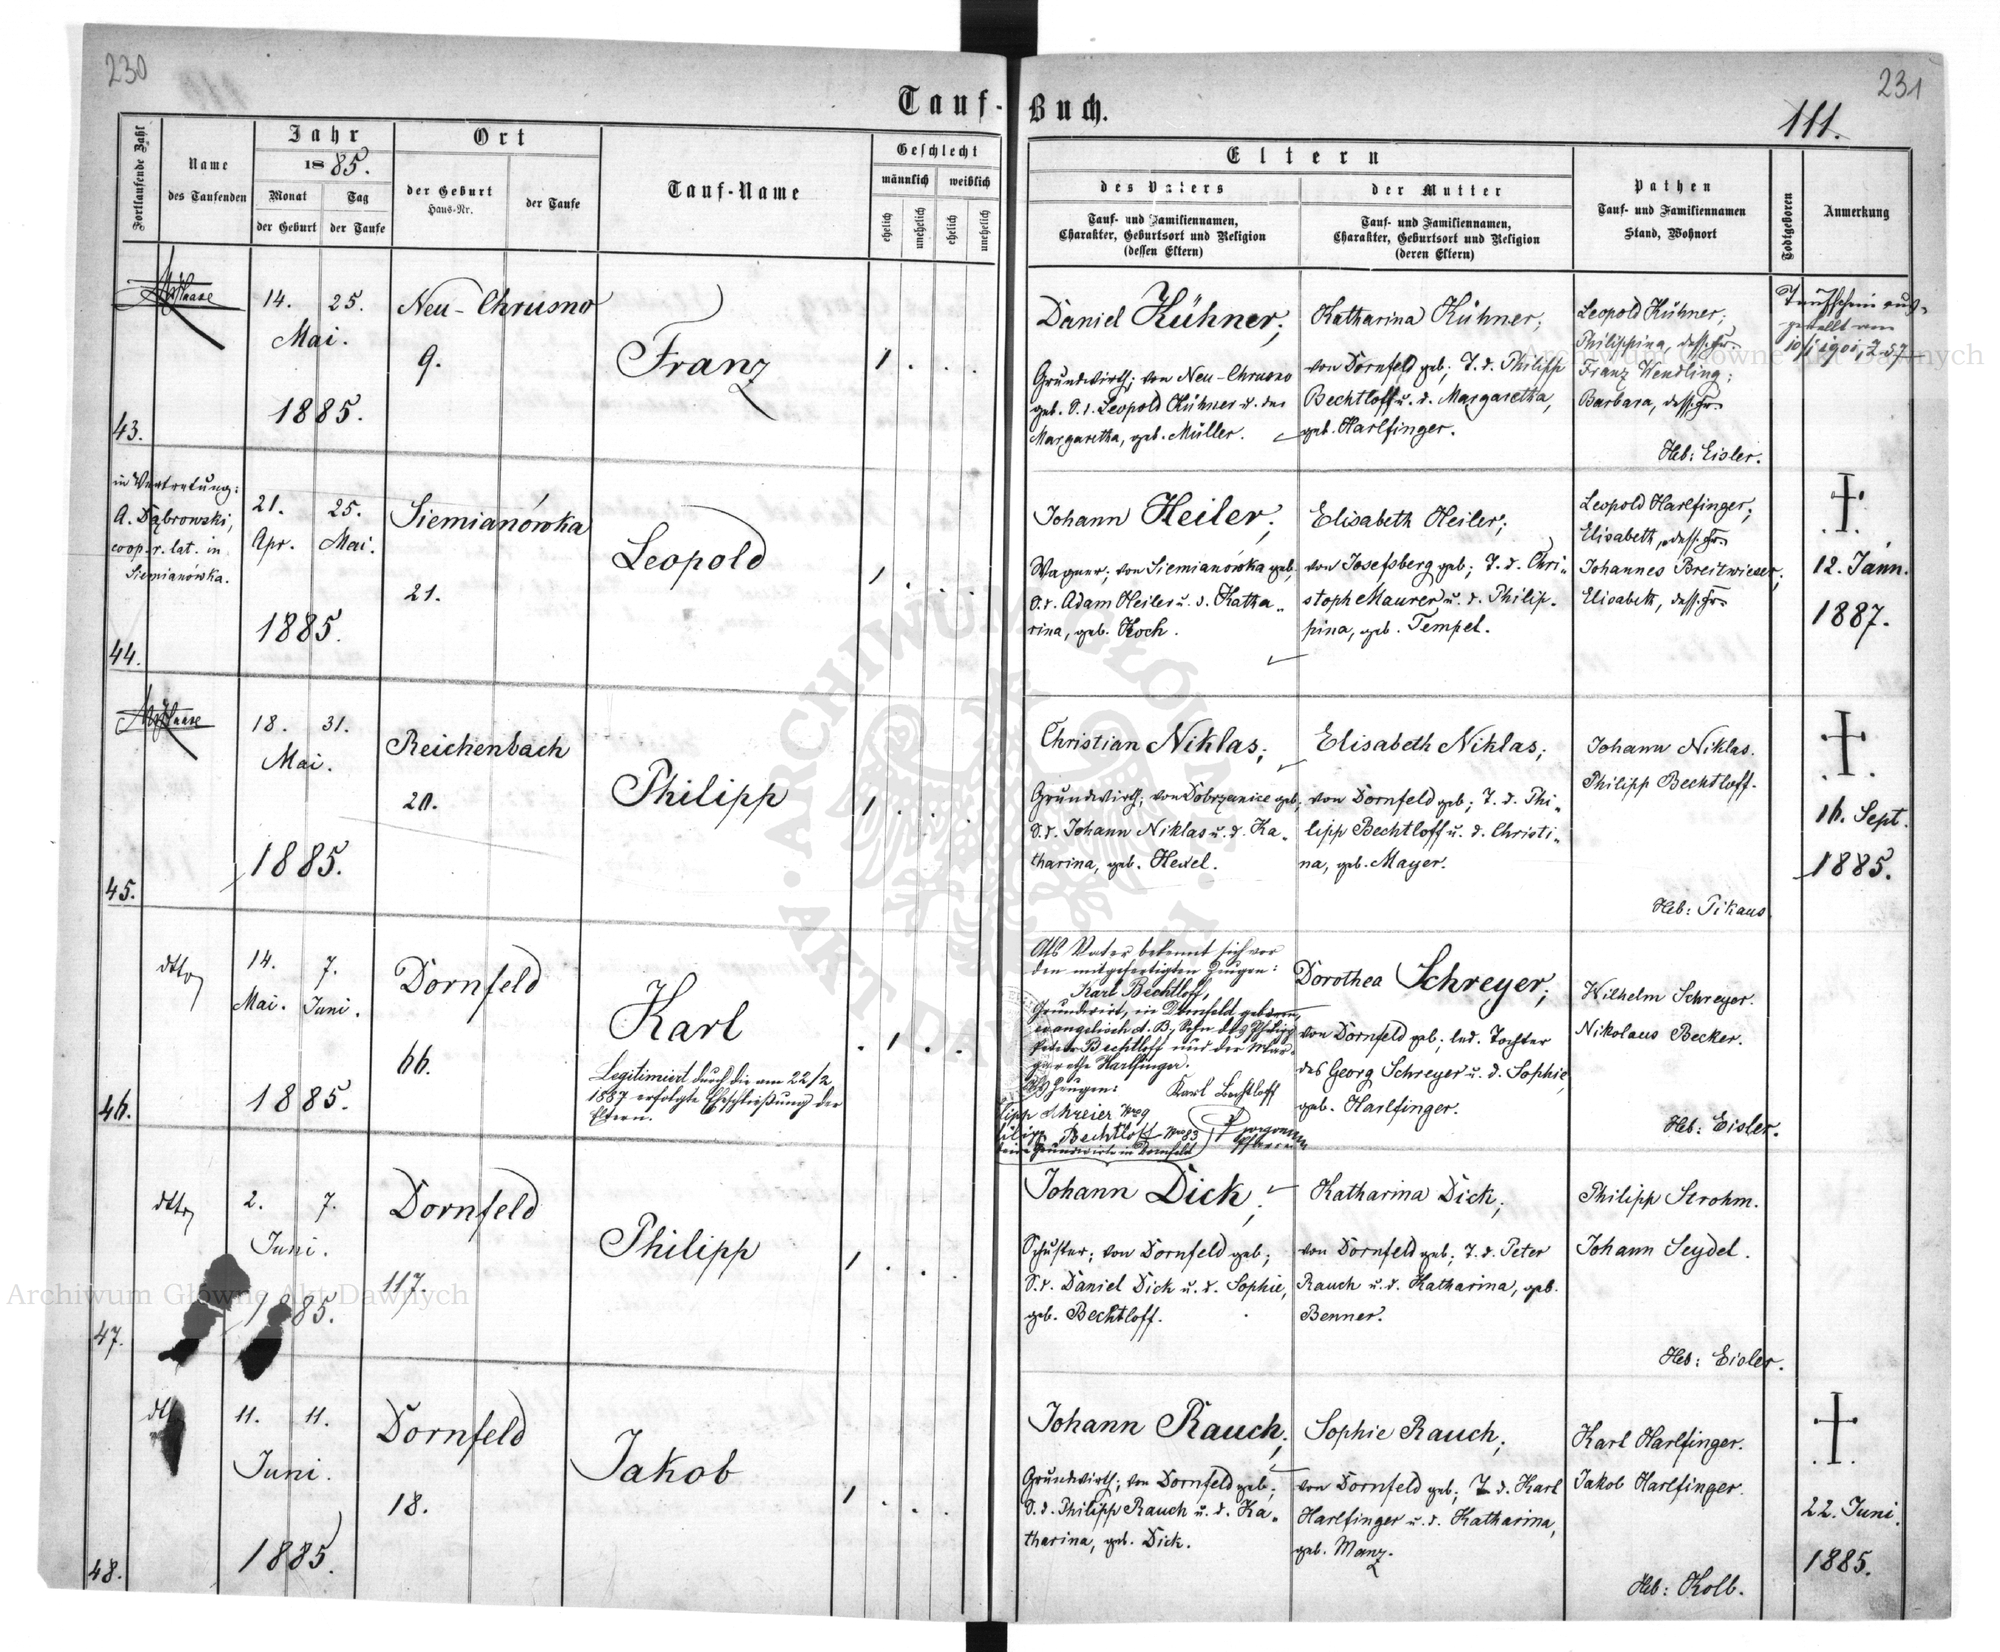 230
231
Tauf-Buch.
111.
Fortlaufende Zahl
Name
des Taufenden
Jahr
1885.
Monat
der Geburt
Tag
der Taufe
Ort
der Geburt
Haus-Nr.
der Taufe
Tauf-Name
Geschlecht
männlich
weiblich
ehelich
unehelich
ehelich
unehelich
Eltern
des Vaters
Tauf- und Familiennamen,
Charakter, Geburtsort und Religion
(dessen Eltern)
der Mutter
Tauf- und Familiennamen,
Charakter, Geburtsort und Religion
(deren Eltern)
Pathen
Tauf- und Familiennamen
Stand, Wohnort
Todtgeboren
Anmerkung
43.
14. 25.
Mai.
1885.
Neu-Chrusno
9.
Franz
1 . . .
Daniel Kühner;
Grundwirth; von Neu-Chrusno
geb. S. d. Leopold Kühner u. der
Margaretha, geb. Müller.
Katharina Kühner;
von Dornfeld geb; T. d. Philipp
Bechtloff u. d. Margaretha,
geb. Harlfinger.
Leopold Kühner;
Philippina, dess. Fr.
Franz Wendling;
Barbara, dess. Fr.
Heb: Eisler.
Taufschein aus-
gestellt am
44.
in Vertretung:
A. Dąbrowski,
coop. r. lat. in
Siemianówka.
21. 25.
Apr. Mai.
1885.
Siemianówka
21.
Leopold
1 . . .
Johann Heiler;
Wagner; von Siemianówka geb,
S. d. Adam Heiler u. d. Katha-
rina, geb. Koch.
Elisabeth Heiler;
von Josefsberg geb; T. d. Chri-
stoph Maurer u. d. Philip-
pina, geb. Tempel.
Leopold Harlfinger;
Elisabeth, dess. Fr.
Johannes Breitwieser;
Elisabeth, dess. Fr.
12. Jänn.
1887.
45.
18. 31.
Mai.
1885.
Reichenbach
20.
Philipp
1 . . .
Christian Niklas;
Grundwirth; von Dobrzanice geb;
S. d. Johann Niklas u. d. Ka-
tharina, geb. Hexel.
Elisabeth Niklas;
von Dornfeld geb; T. d. Phi-
lipp Bechtloff u. d. Christi-
na, geb. Mayer.
Johann Niklas.
Philipp Bechtloff.
Heb: Pikaus
16. Sept.
1885.
46.
dtto
14. 7.
Mai. Juni.
1885.
Dornfeld
66.
Karl
Legitimiert durch die am 22/2
1887 erfolgte Eheschließung der
Eltern.
. 1 . .
Als Vater bekennt sich vor
den mitgefertigten Zeugen:
Karl Bechtloff,
Grundwirt, in Dornfeld geboren,
evangelisch A. B., Sohn des Philipp
Peter Bechtloff und der Mar-
garethe Harlfinger.
Zeugen: Karl Bechtloff
Schreier
Bechtloff No 83
Grundwirte in Dornfeld
Dorothea Schreyer;
von Dornfeld geb; led. Tochter
des Georg Schreyer u. d. Sophie,
geb. Harlfinger.
Wilhelm Schreyer.
Nikolaus Becker.
Heb: Eisler.
47.
dtto
2. 7.
Juni.
1885.
Dornfeld
117.
Philipp
1 . . .
Johann Dick;
Schuster; von Dornfeld geb;
S. d. Daniel Dick u. d. Sophie,
geb. Bechtloff.
Katharina Dick;
von Dornfeld geb; T. d. Peter
Rauch u. d. Katharina, geb.
Benner.
Philipp Strohm.
Johann Seydel.
Heb: Eisler.
48.
11. 11.
Juni.
1885.
Dornfeld
18.
Jakob
1 . . .
Johann Rauch;
Grundwirth; von Dornfeld geb;
S. d. Philipp Rauch u. d. Ka-
tharina, geb. Dick.
Sophie Rauch;
von Dornfeld geb; T. d. Karl
Harlfinger u. d. Katharina,
geb. Manz.
Karl Harlfinger.
Jakob Harlfinger.
Heb: Kolb.
22. Juni.
1885.
Archiwum Główne Akt Dawnych
Archiwum Główne Akt Dawnych
ARCHIWUM GŁÓWNE AKT DAWNYCH